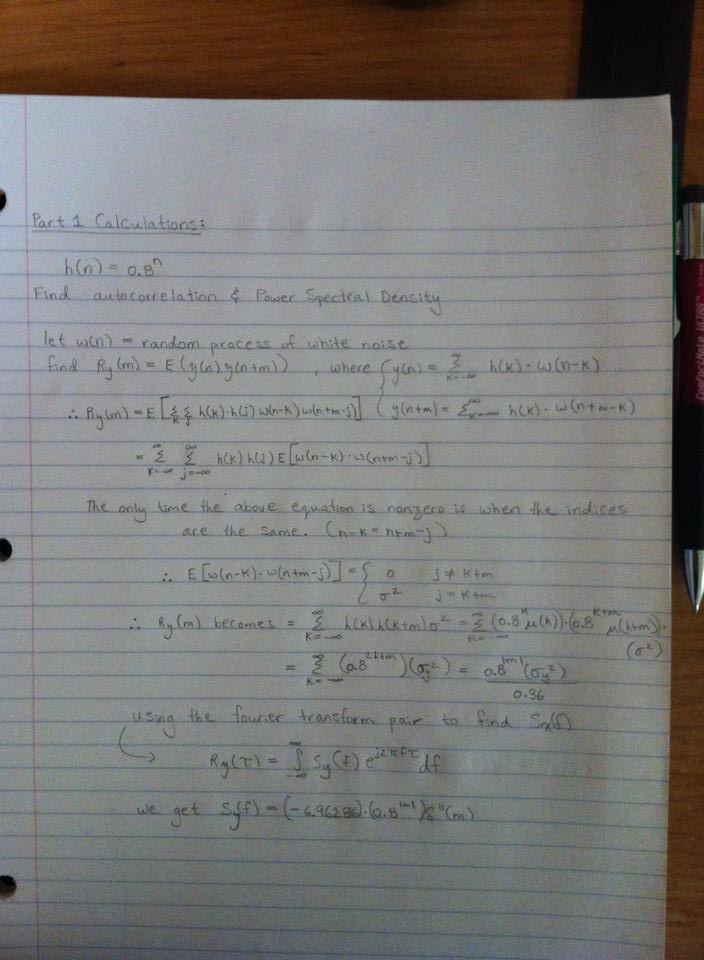 Part 1 Calculations:
h(n) = 0.8ⁿ
Find autocorrelation & Power Spectral Density
let w(n) = random process of white noise
find Ry(m) = E(y(n)y(n+m)) , where { y(n) = Σ_{k=-∞}^{∞} h(k)·w(n-k)
∴ Ry(m) = E[Σ_k Σ_j h(k)·h(j)w(n-k)w(n+m-j)] { y(n+m) = Σ_{k=-∞}^{∞} h(k)·w(n+m-k)
= Σ_{k=-∞}^{∞} Σ_{j=-∞}^{∞} h(k)h(j)E[w(n-k)·w(n+m-j)]
The only time the above equation is nonzero is when the indices
are the same. (n-k = n+m-j)
∴ E[w(n-k)·w(n+m-j)] = { 0 j ≠ k+m
σ² j = k+m
∴ Ry(m) becomes = Σ_{k=-∞}^{∞} h(k)h(k+m)σ² = Σ_{k=-∞}^{∞} (0.8^k μ(k))·(0.8^{k+m} μ(k+m))·
(σ²)
= Σ_{k=-∞}^{∞} (0.8^{2k+m})(σy²) = 0.8^{|m|}(σy²)
0.36
using the fourier transform pair to find Sx(f)
Ry(τ) = ∫_{-∞}^{∞} Sy(f) e^{j2πfτ} df
we get Sy(f) = (-6.96286)·(0.8^{|m|})δ''(m)
ComfortMate ULTRA